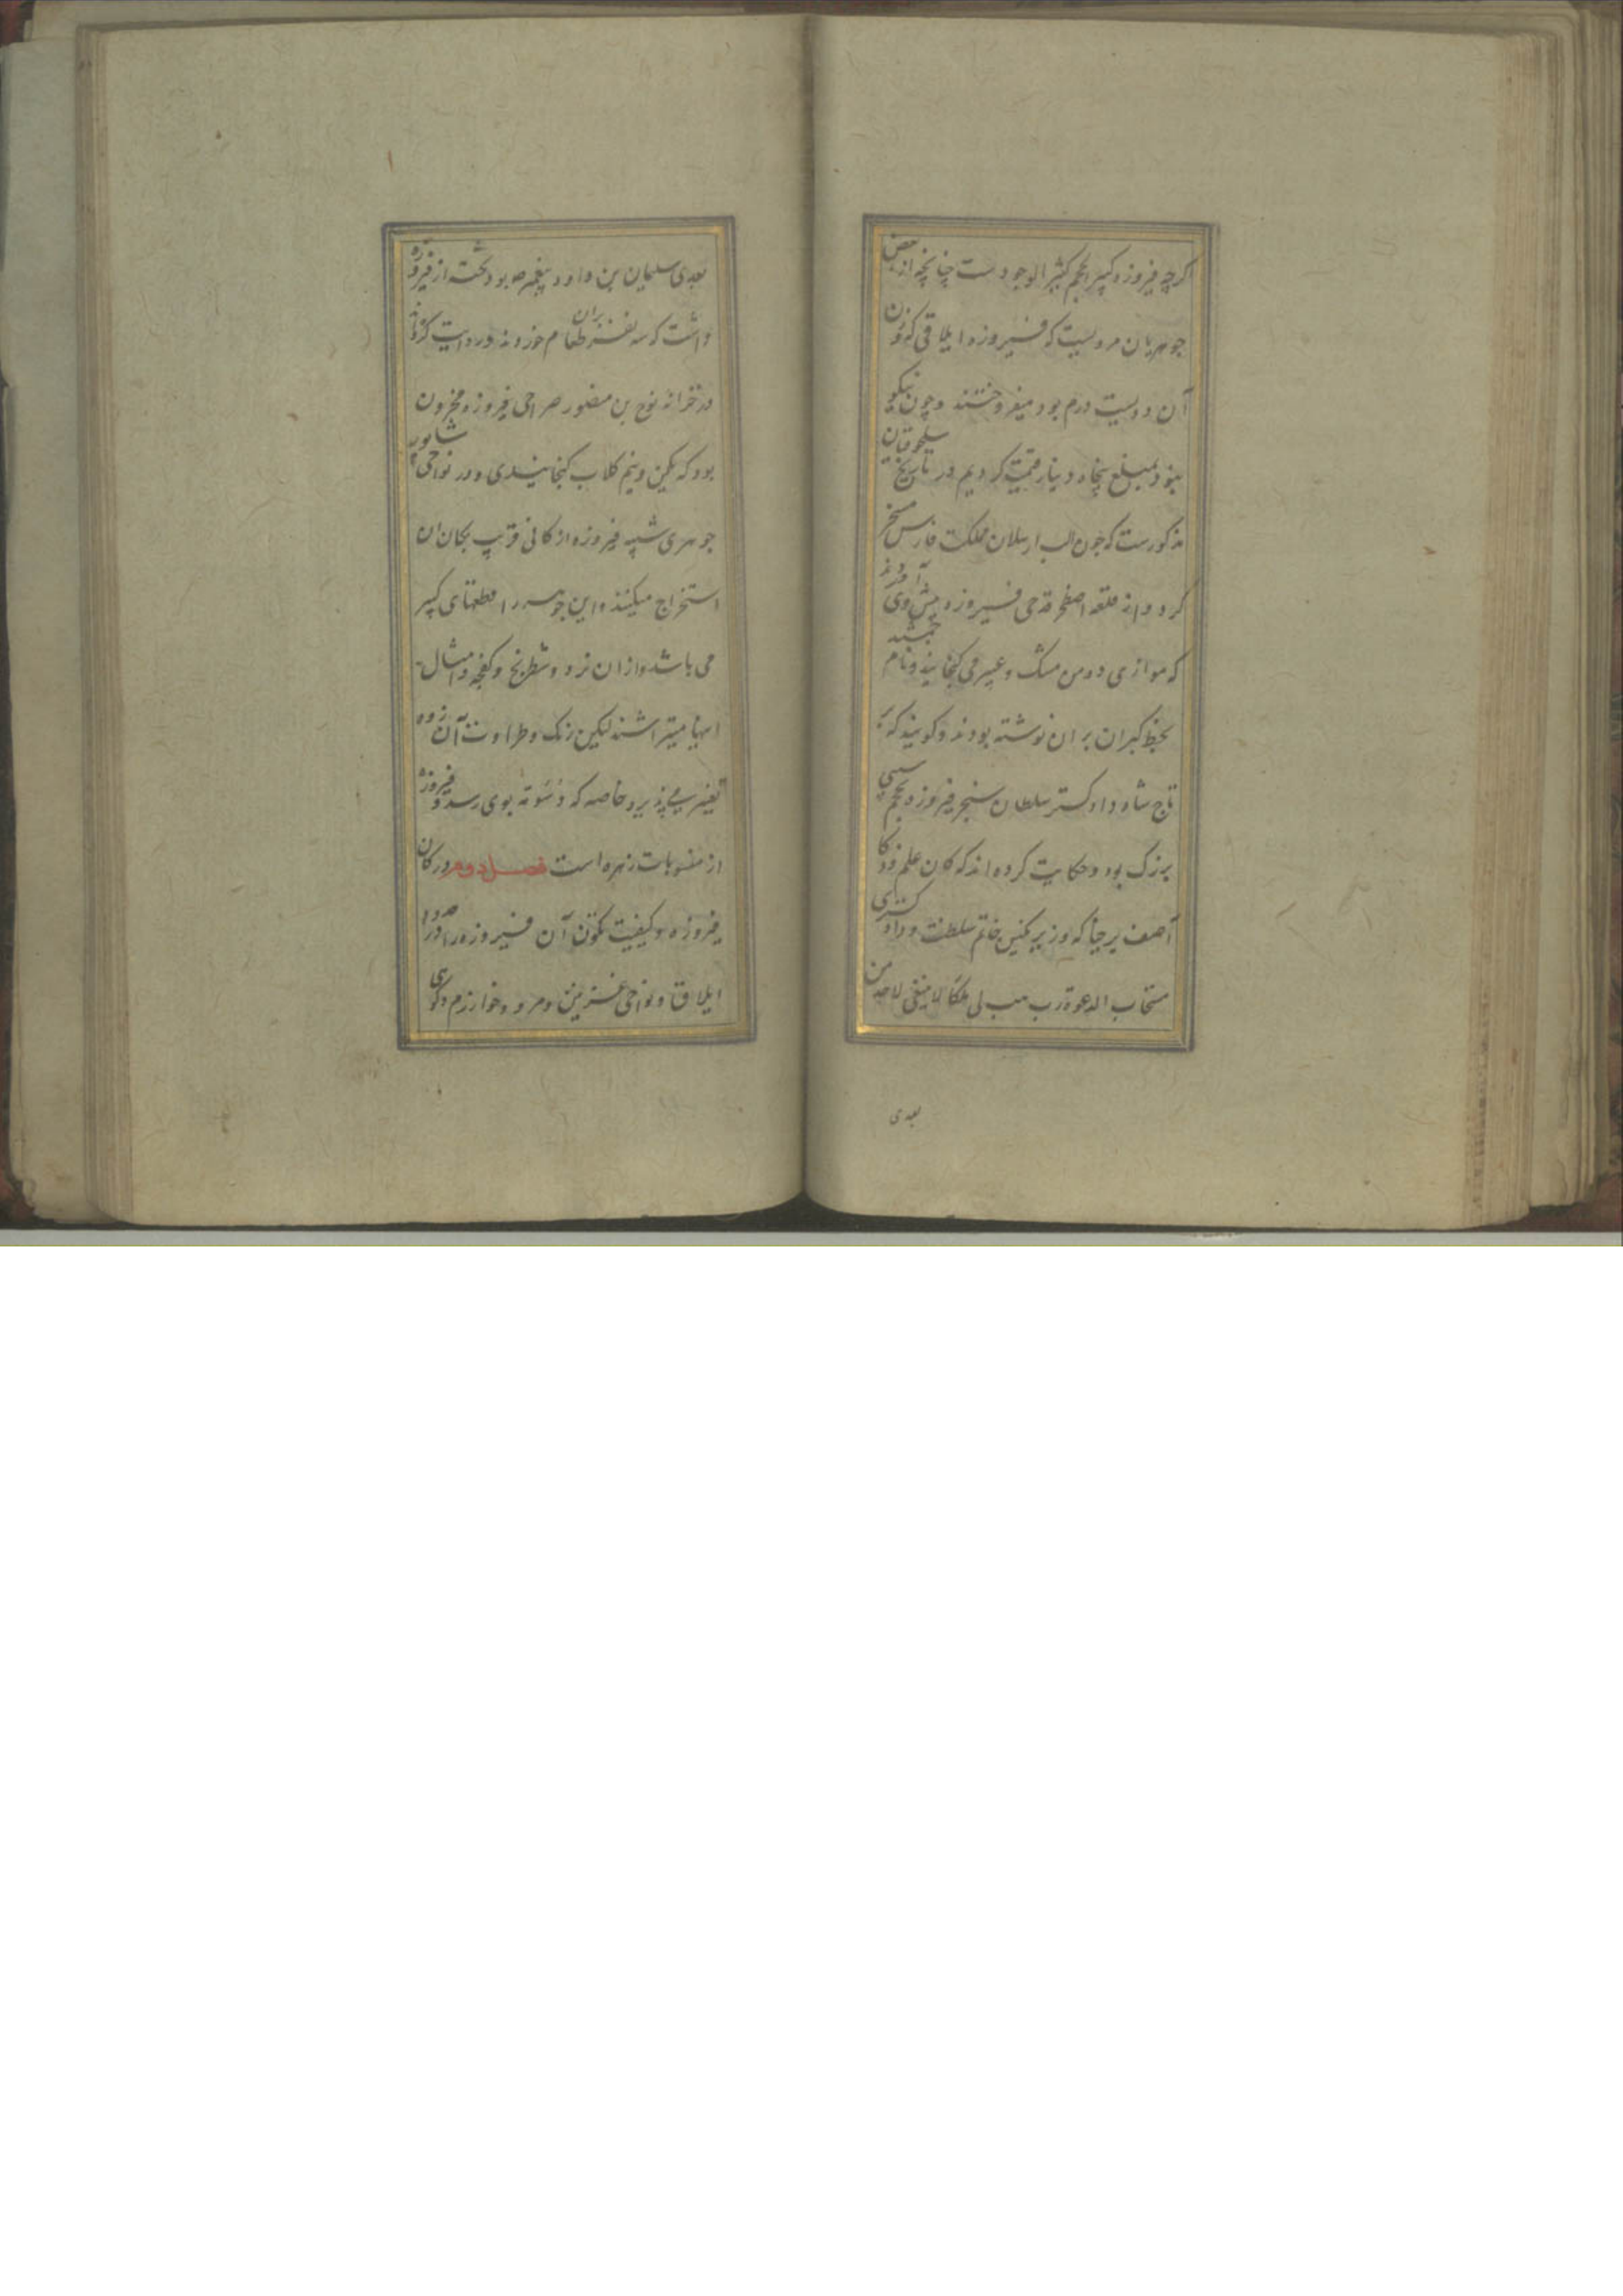 اگرچه فیروزه کبیر الحجم کثیر الوجودست چنانچه از بعض
جوهریان مرویست که فیروزه ایلاقی که وزن
آن دویست درم بود میفروختند و چون نیکو
نبود بمبلغ پنجاه دینار قیمت کردیم در تاریخ سلجوقیان
مذکورست که چون الب ارسلان مملکت فارس مسخر
کرد و از قلعه اصطخر قدحی فیروزه پیش وی آوردند
که موازی دو من مشک و عبیر می کنجانیدند و نام جمشید
بخط کبران بر ان نوشته بودند و کویند که بر
تاج شاه دادکستر سلطان سنجر فیروزه بحجم سیبی
بزرک بود و حکایت کرده اند که کان علم و ذکا
آصف برخیا که وزیر نکین خاتم سلطنت و دادکستری
مستجاب الدعوة رب هب لی ملکا لا ینبغی لاحد من
بعدی
بعدی سلیمان بن داود پیغمبر بود تخته از فیروزه
داشت که سه نفر بران طعام خوردند و روایت کرده‌اند
در خزانه نوح بن منصور صراحی فیروزه مخزون
بود که یکمن و نیم کلاب کنجانیدی و در نواحی نیشابور
جوهری شبیه فیروزه از کانی قریب بکان ان
استخراج میکنند و این جوهر را قطعهای کبیر
می باشد و از ان نرد و شطرنج و کفچه و امثال
اینها میتراشند لیکن رنک و طراوت آن زود
تغیر می پذیرد خاصه که دسوته بوی رسد و فیروزه
از منسوبات زهره است فصل دوم در کان
فیروزه و کیفیت تکون آن فیروزه را در حدود
ایلاق و نواحی غزنین و مرو و خوارزم و کوهی